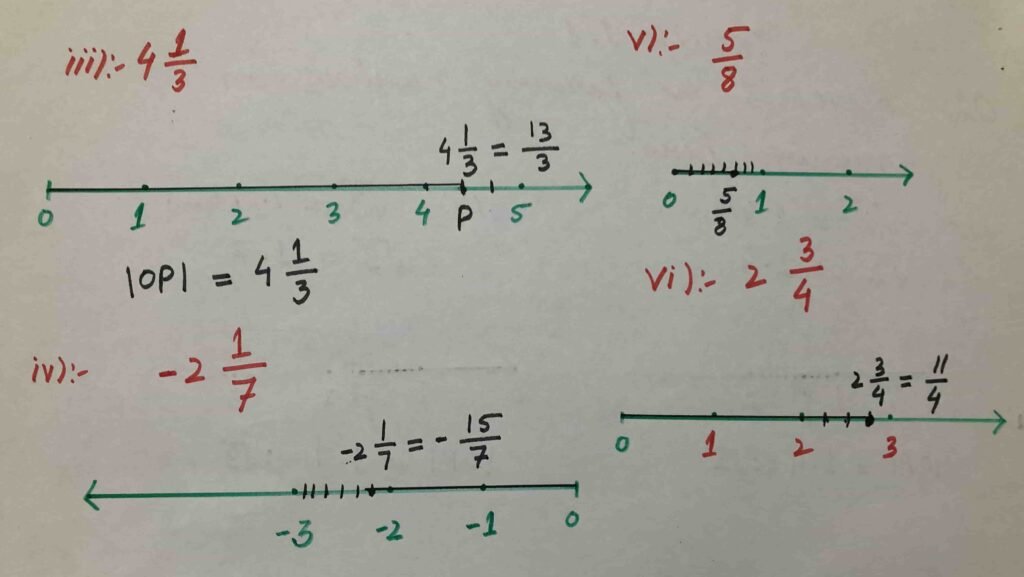 iii):- 4 1/3
4 1/3 = 13/3
0 1 2 3 4 P 5
|OP| = 4 1/3
iv):- -2 1/7
-2 1/7 = - 15/7
-3 -2 -1 0
v):- 5/8
0 5/8 1 2
vi):- 2 3/4
2 3/4 = 11/4
0 1 2 3